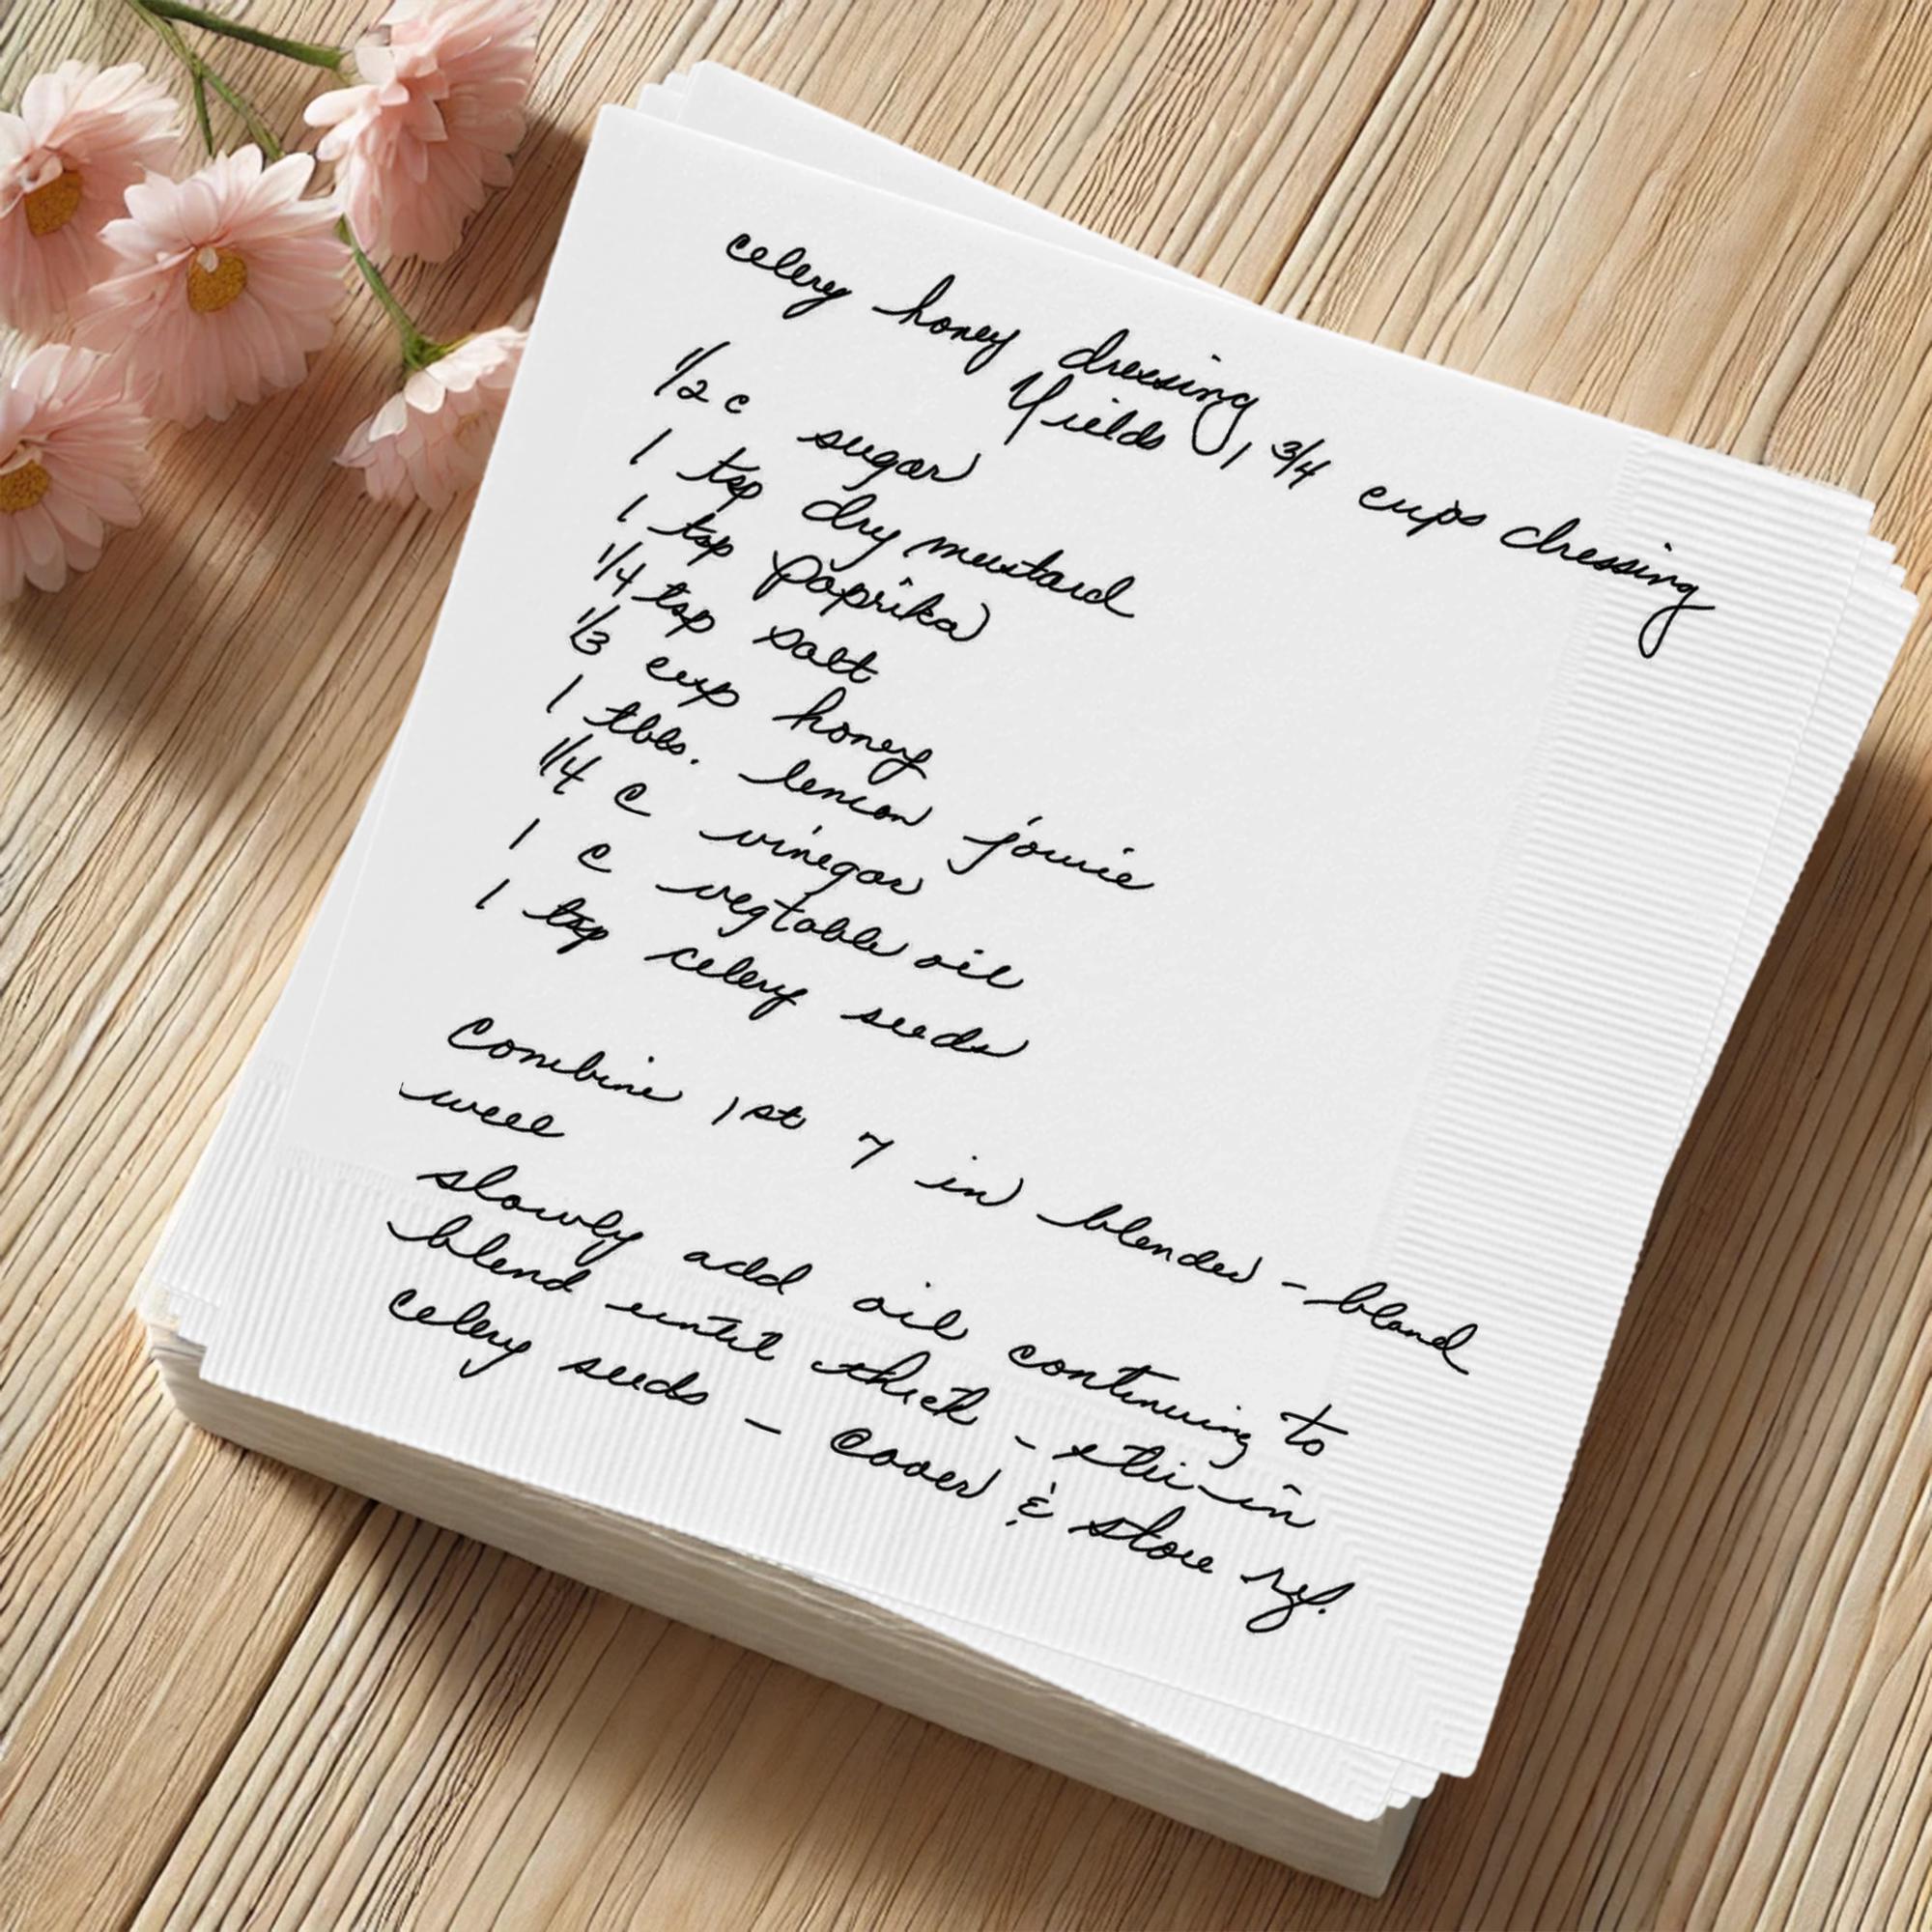 celery honey dressing
Yields 1 3/4 cups dressing
1/2 c sugar
1 tsp dry mustard
1 tsp Paprika
1/4 tsp salt
1/3 cup honey
1 tbls. lemon jouice
1/4 c vinegar
1 c vegtable oil
1 tsp celery seeds
Combine 1st 7 in blender - bland
well
slowly add oil continuing to
blend until thick - stir in
celery seeds - Cover & store ref.